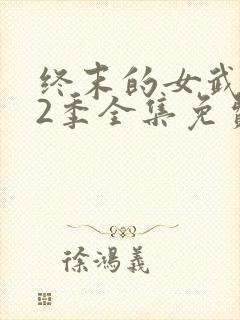 终末的女武
2季全集免费
徐鸿義